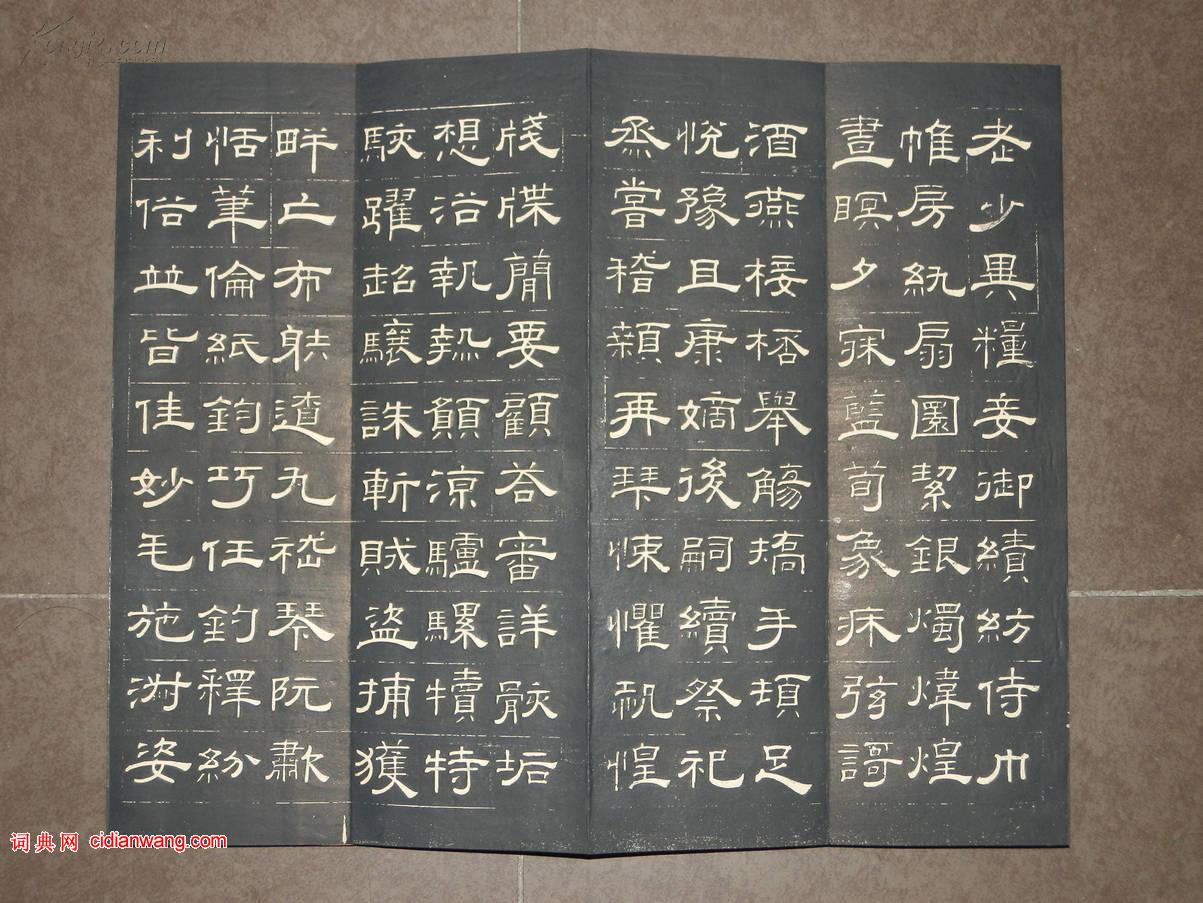 老少異糧妾御績紡侍巾
帷房紈扇圓絜銀燭煒煌
晝瞑夕寐藍荀象床弦謌
酒燕接桮舉觴矯手頓足
悅豫且康嫡後嗣續祭祀
烝嘗稽顙再拜悚懼恐惶
牋牒簡要顧答審詳骸垢
想浴執熱願涼驢騾犢特
駭躍超驤誅斬賊盜捕獲
畔亡布射遼丸嵇琴阮歗
恬筆倫紙鈞巧任釣釋紛
利俗並皆佳妙毛施淑姿
词典网 cidianwang.com